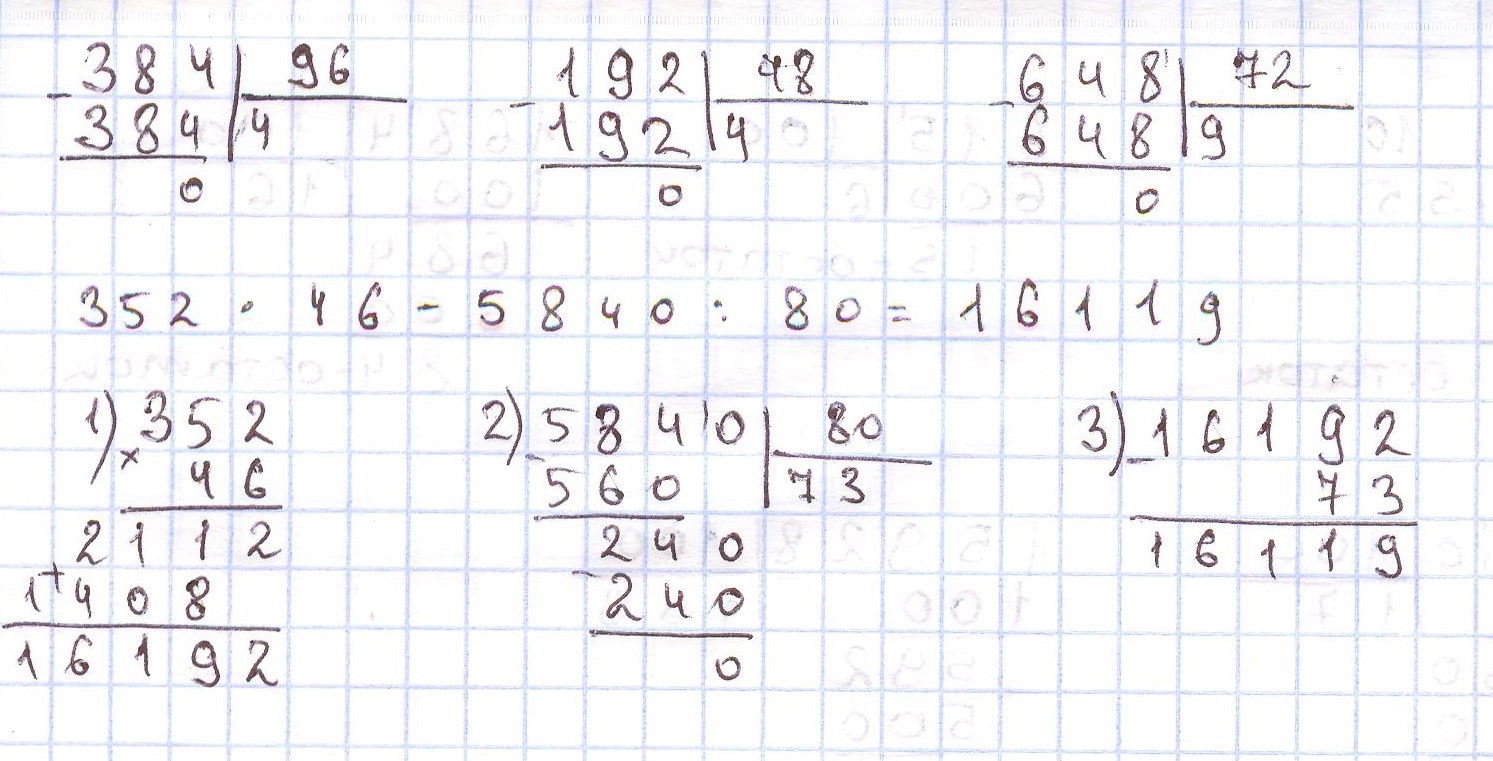 384 | 96    192 | 48    648 | 72
- 384 | 4    - 192 | 4    - 648 | 9
0    0    0
352 · 46 - 5840 : 80 = 16119
1) 352    2) 5840 | 80    3) 16192
× 46    - 560 | 73    - 73
2112    240    16119
+ 1408    - 240
16192    0